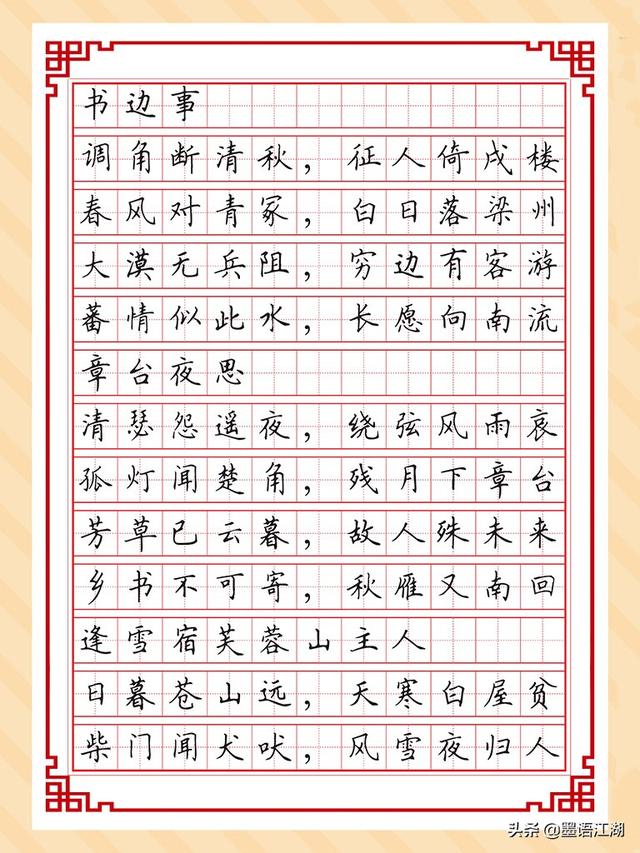 书边事
调角断清秋，征人倚戍楼
春风对青冢，白日落梁州
大漠无兵阻，穷边有客游
蕃情似此水，长愿向南流
章台夜思
清瑟怨遥夜，绕弦风雨哀
孤灯闻楚角，残月下章台
芳草已云暮，故人殊未来
乡书不可寄，秋雁又南回
逢雪宿芙蓉山主人
日暮苍山远，天寒白屋贫
柴门闻犬吠，风雪夜归人
头条 @墨语江湖